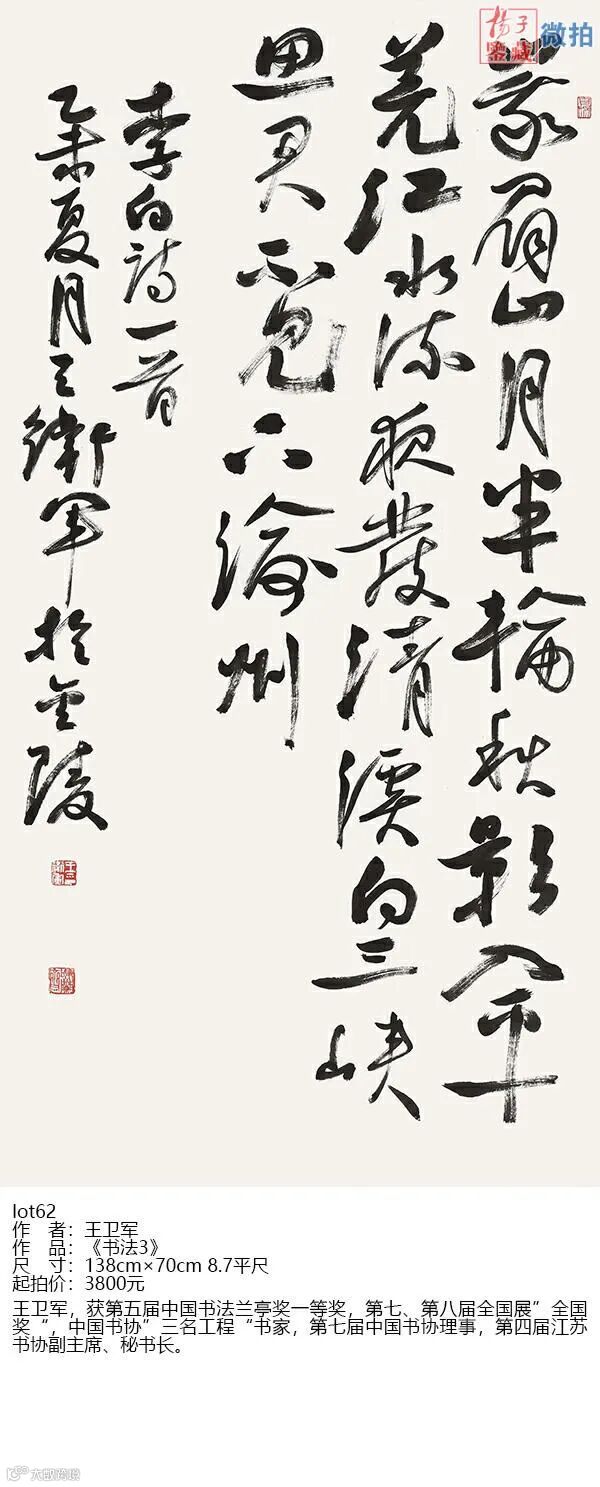 揚子
鑒藏
微拍
峩眉山月半輪秋影入平
羌江水流夜發清溪向三峡
思君不見下渝州
李白詩一首
乙未夏月王衛軍於金陵
lot62
作 者：王卫军
作 品：《书法3》
尺 寸：138cm×70cm 8.7平尺
起拍价：3800元
王卫军，获第五届中国书法兰亭奖一等奖，第七、第八届全国展”全国
奖“，中国书协”三名工程“书家，第七届中国书协理事，第四届江苏
书协副主席、秘书长。
大数跨境